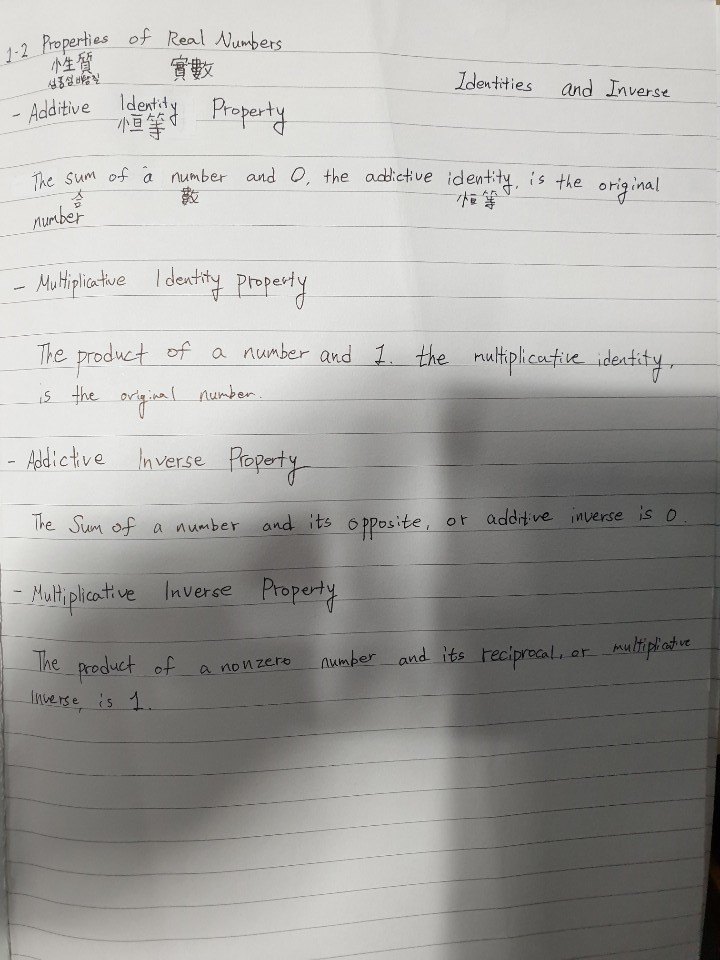 1-2 Properties of Real Numbers
性質 實數
Identities and Inverse
- Additive Identity Property
恒等
The sum of a number and 0, the addictive identity, is the original
合 數 恒等
number
- Multiplicative Identity property
The product of a number and 1. the multiplicative identity,
is the original number.
- Addictive Inverse Property
The Sum of a number and its opposite, or additive inverse is 0.
- Multiplicative Inverse Property
The product of a nonzero number and its reciprocal, or multiplicative
Inverse, is 1.